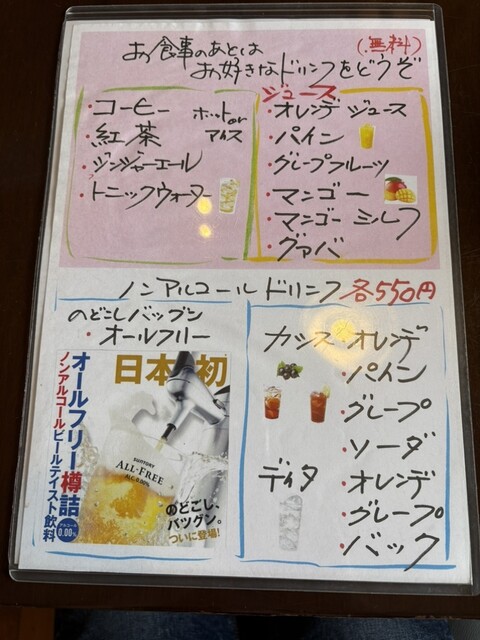 お食事のあとは
お好きなドリンクをどうぞ
(無料)
・コーヒー
・紅茶
ホットor
アイス
・ジンジャーエール
・トニックウォーター
ジュース
・オレンヂ ジュース
・パイン
・グレープフルーツ
・マンゴー
・マンゴー ミルク
・グァバ
ノンアルコール ドリンク 各550円
のどごしバツグン
・オールフリー
日本初
オールフリー樽詰
ノンアルコールビールテイスト飲料
アルコール
0.00%
SUNTORY
ALL-FREE
ALC.0.00%
のどごし、
バツグン。
ついに登場!
カシス オレンヂ
・パイン
・グレープ
・ソーダ
ディタ ・オレンヂ
・グレープ
・バック